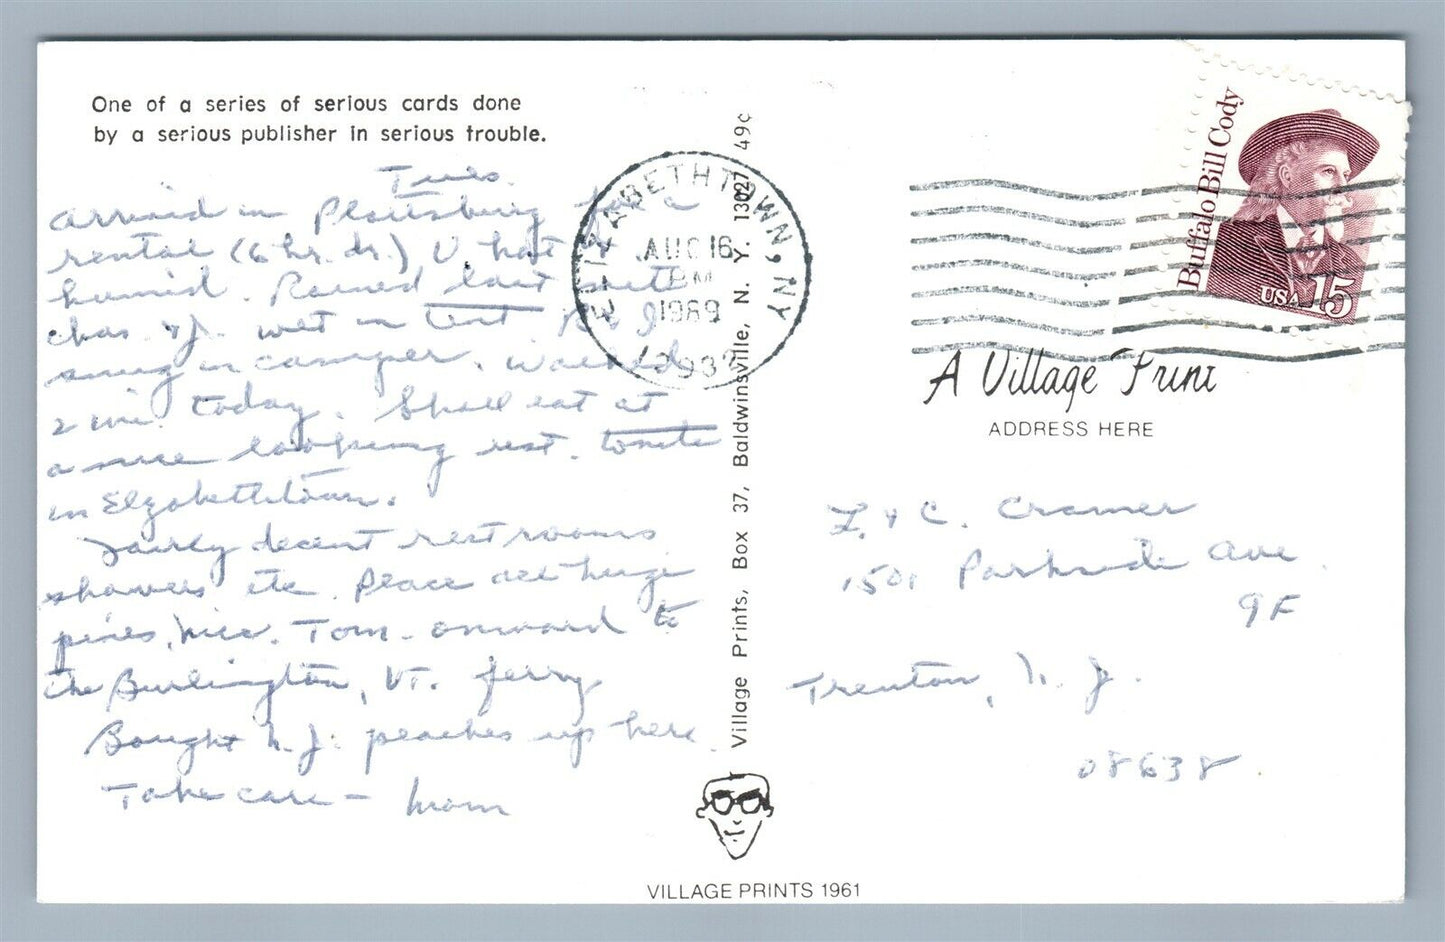 One of a series of serious cards done
by a serious publisher in serious trouble.
Tues.
arrived in Plattsburg for a
rental (6 hr. dr.) V hot +
humid. Rained last nite
chas. + J. wet in tent B & I
snug in camper. Walked
2 mi. today. Shall eat at
a nice looking rest. tonite
in Elzabethtown.
Fairly decent restrooms
showers etc. Place all huge
pines, nice. Tom. onward to
the Burlington, VT. ferry
Bought N.J. peaches up here.
Take care - Mom
Village Prints, Box 37, Baldwinsville, N. Y. 13027 49¢
ELIZABETHTOWN, NY
AUG 16
PM
1989
12932
Buffalo Bill Cody
USA 15
A Village Print
ADDRESS HERE
& C. Cramer
1501 Parkside Ave.
9F
Trenton, N. J.
08638
VILLAGE PRINTS 1961